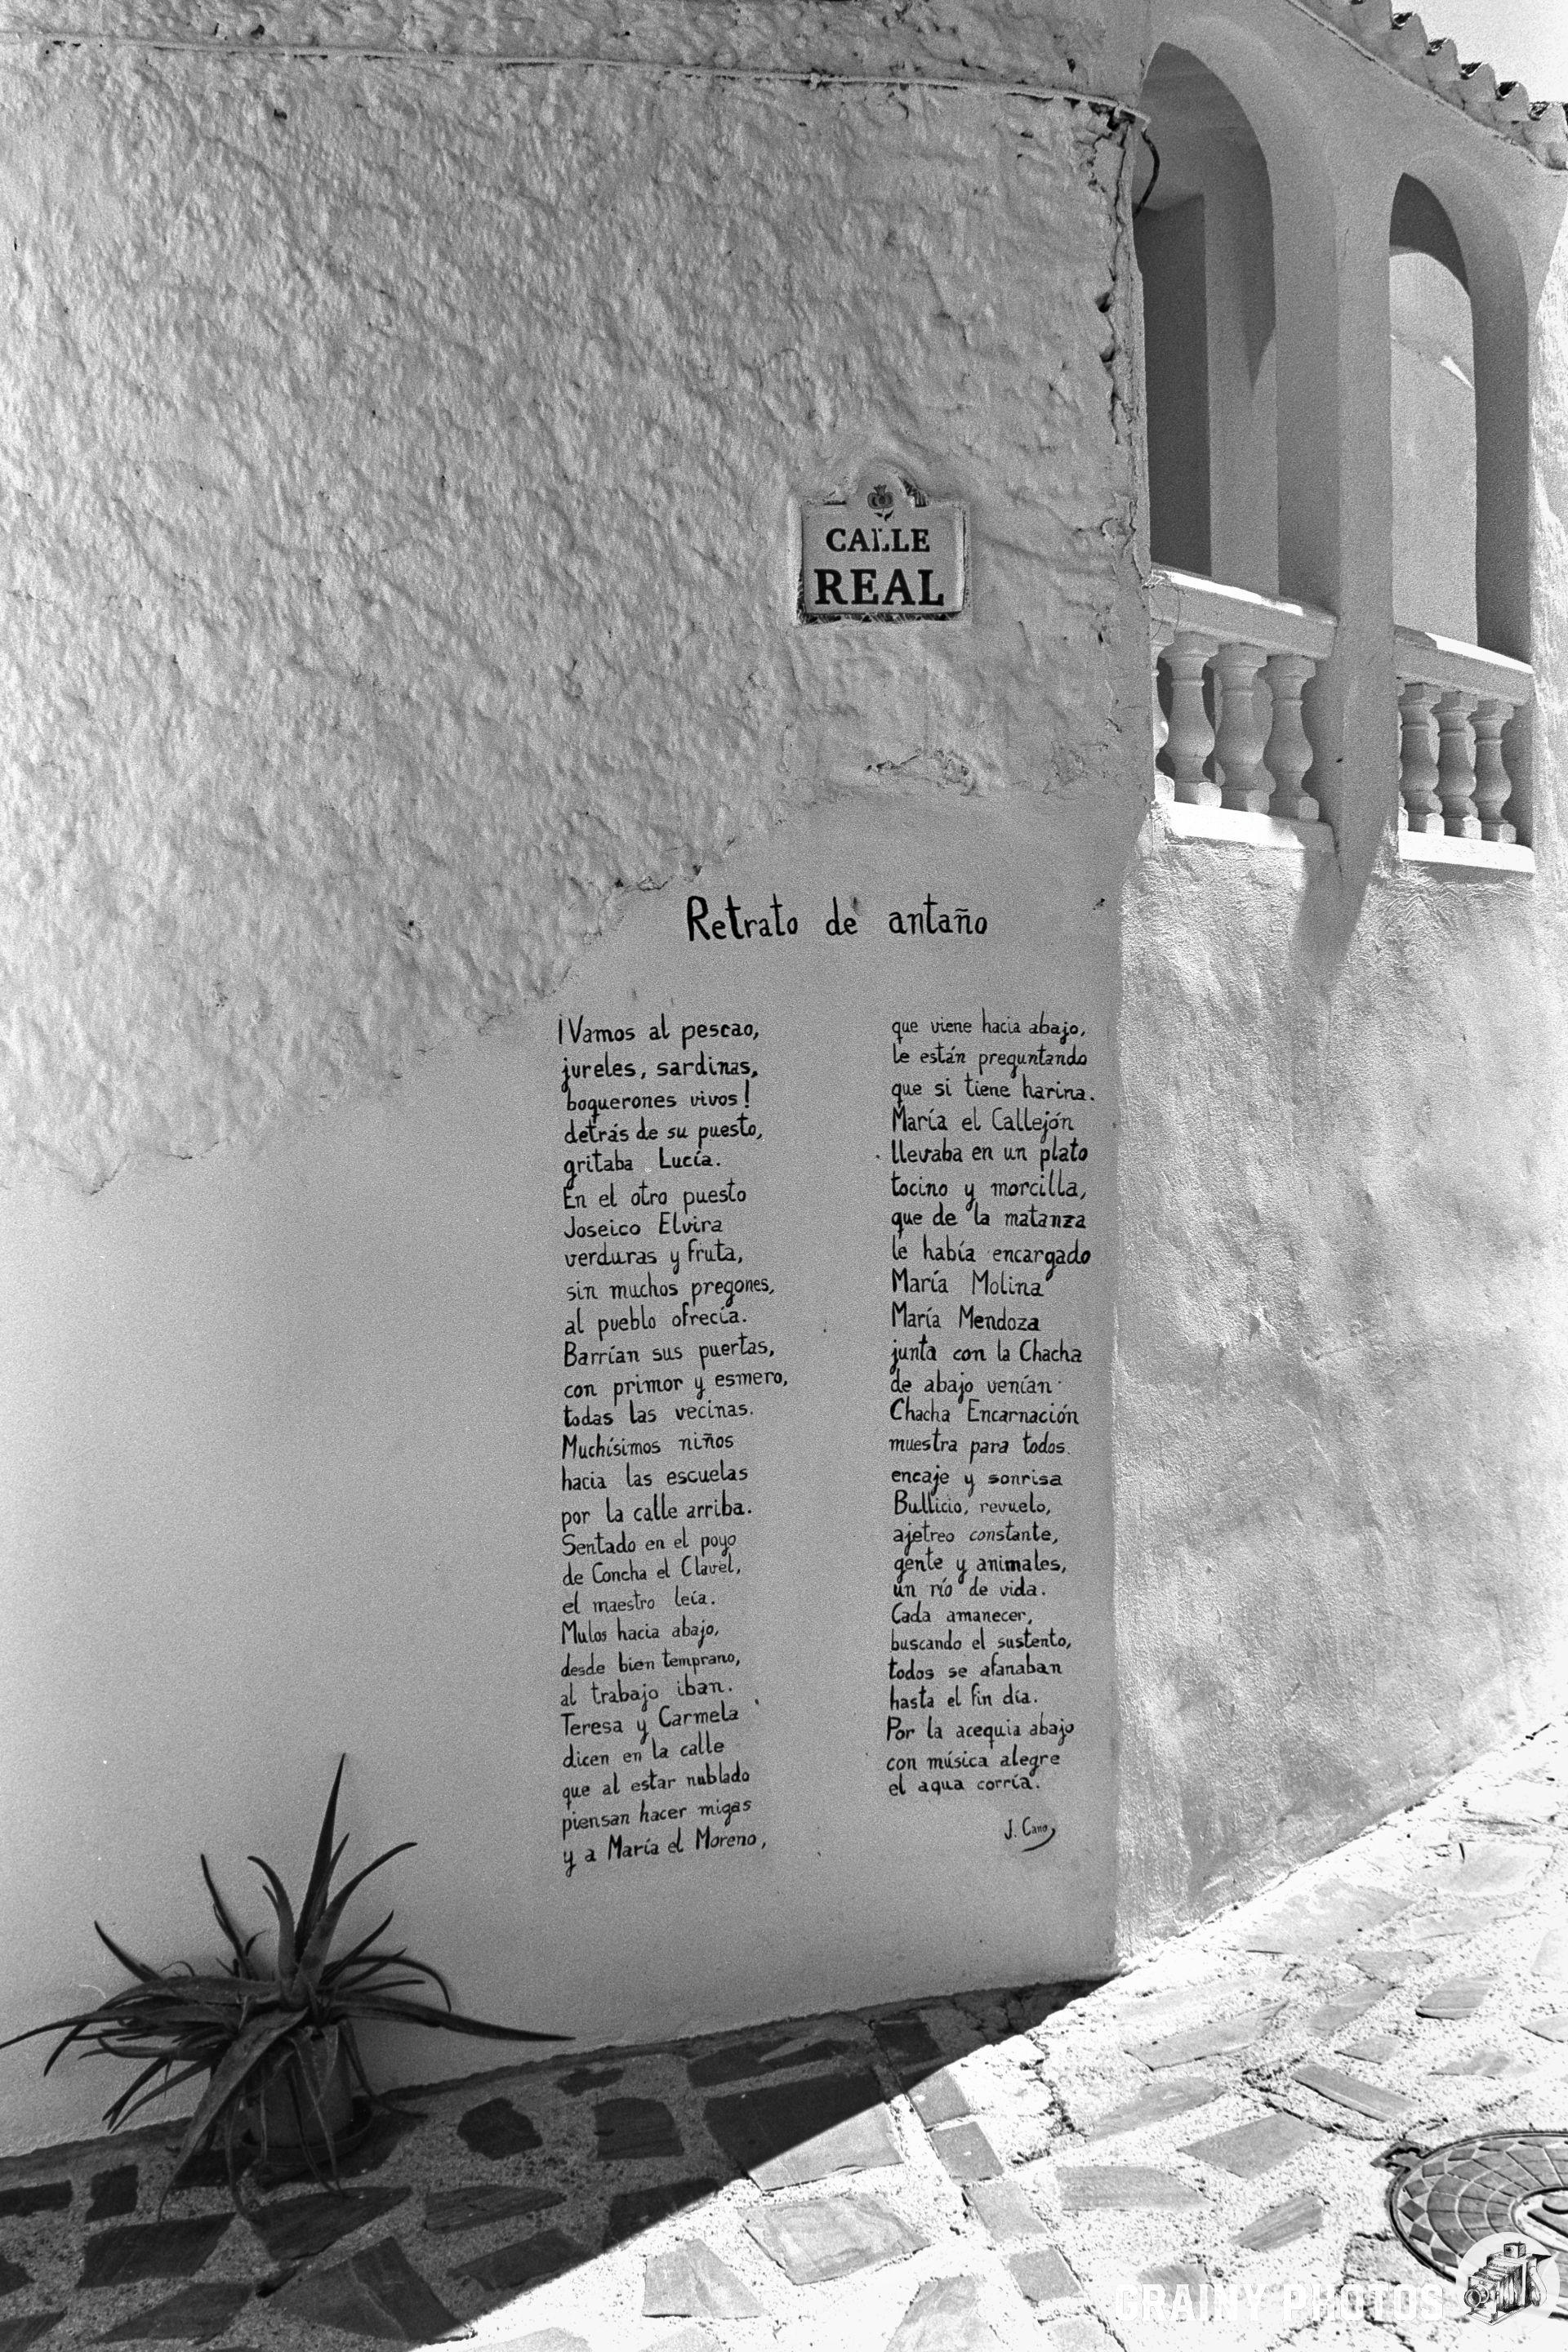 CALLE
REAL
Retrato de antaño
¡Vamos al pescao,
jureles, sardinas,
boquerones vivos!
detrás de su puesto,
gritaba Lucía.
En el otro puesto
Joseico Elvira
verduras y fruta,
sin muchos pregones,
al pueblo ofrecía.
Barrían sus puertas,
con primor y esmero,
todas las vecinas.
Muchísimos niños
hacia las escuelas
por la calle arriba.
Sentado en el poyo
de Concha el Clavel,
el maestro leía.
Mulos hacia abajo,
desde bien temprano,
al trabajo iban.
Teresa y Carmela
dicen en la calle
que al estar nublado
piensan hacer migas
y a María el Moreno,
que viene hacia abajo,
le están preguntando
que si tiene harina.
María el Callejón
llevaba en un plato
tocino y morcilla,
que de la matanza
le había encargado
María Molina
María Mendoza
junta con la Chacha
de abajo venían
Chacha Encarnación
muestra para todos
encaje y sonrisa
Bullicio, revuelo,
ajetreo constante,
gente y animales,
un río de vida.
Cada amanecer,
buscando el sustento,
todos se afanaban
hasta el fin día.
Por la acequia abajo
con música alegre
el agua corría.
J. Cano
GRAINY PHOTOS